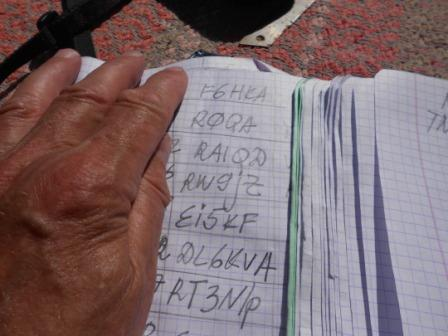 F6HKA
RØQA
2 RA1QD
RW9jZ
Ei5KF
2 DL6KVA
7 RT3N/p